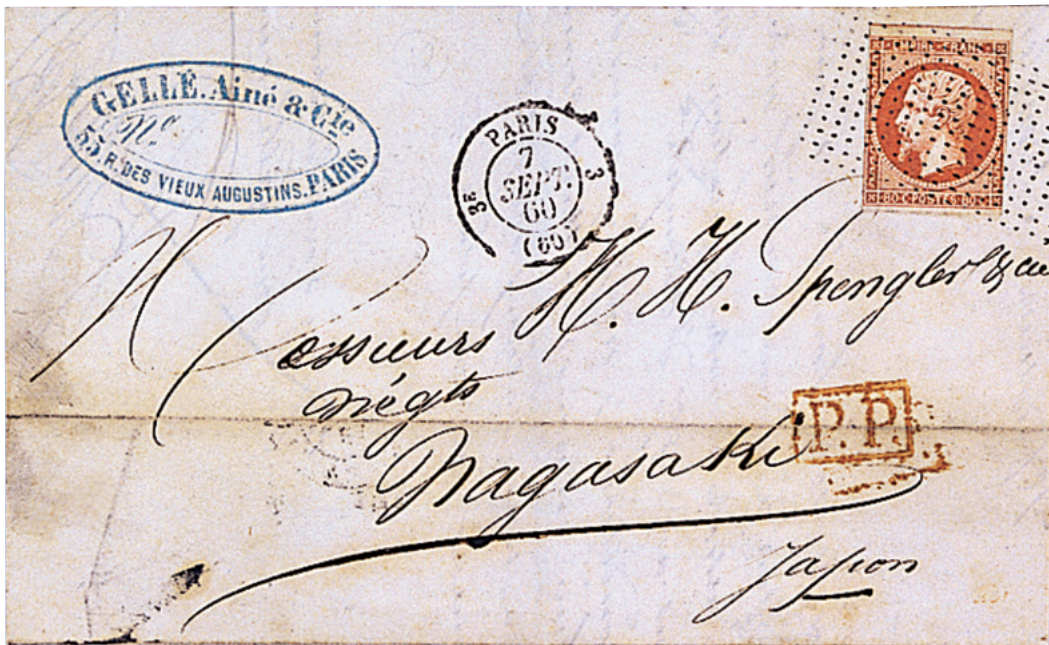 GELLE. Ainé & Cie
No.
55. R. DES VIEUX AUGUSTINS. PARIS
PARIS
7
SEPT.
60
(60)
3E
3
EMPIRE FRANC
80 C POSTES 80 C
Messieurs H. H. Spengler & Cie
négts
Nagasaki
P.P.
Japon